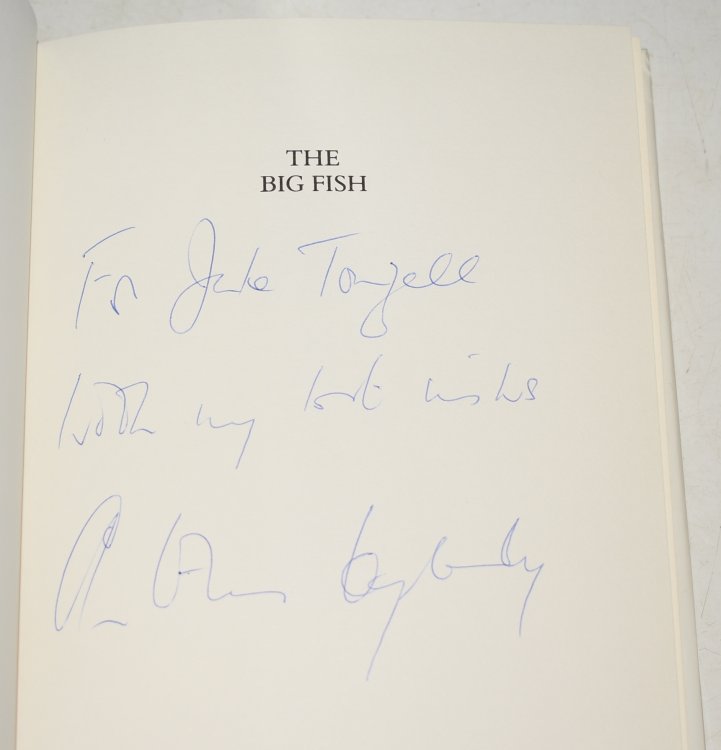 THE
BIG FISH
For Jake
with my best wishes